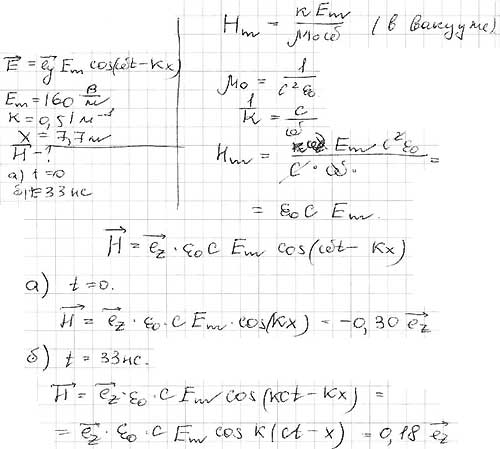 E⃗ = e⃗y Em cos(ωt − Kx)
Em = 160 В/м
K = 0,51 м⁻¹
x = 7,7 м
H⃗ − ?
а) t = 0
б) t = 33 нс
Hm = K Em / μ0 ω (в вакууме)
μ0 = 1 / c² ε0
1/K = c/ω
Hm = Em c² ε0 / c · ω · =
= ε0 c Em.
H⃗ = e⃗z · ε0 c Em cos(ωt − Kx)
а) t = 0.
H⃗ = e⃗z · ε0 · c Em · cos(Kx) = −0,30 e⃗z
б) t = 33 нс.
H⃗ = e⃗z · ε0 · c Em cos(Kct − Kx) =
= e⃗z · ε0 · c Em cos K(ct − x) = 0,18 e⃗z